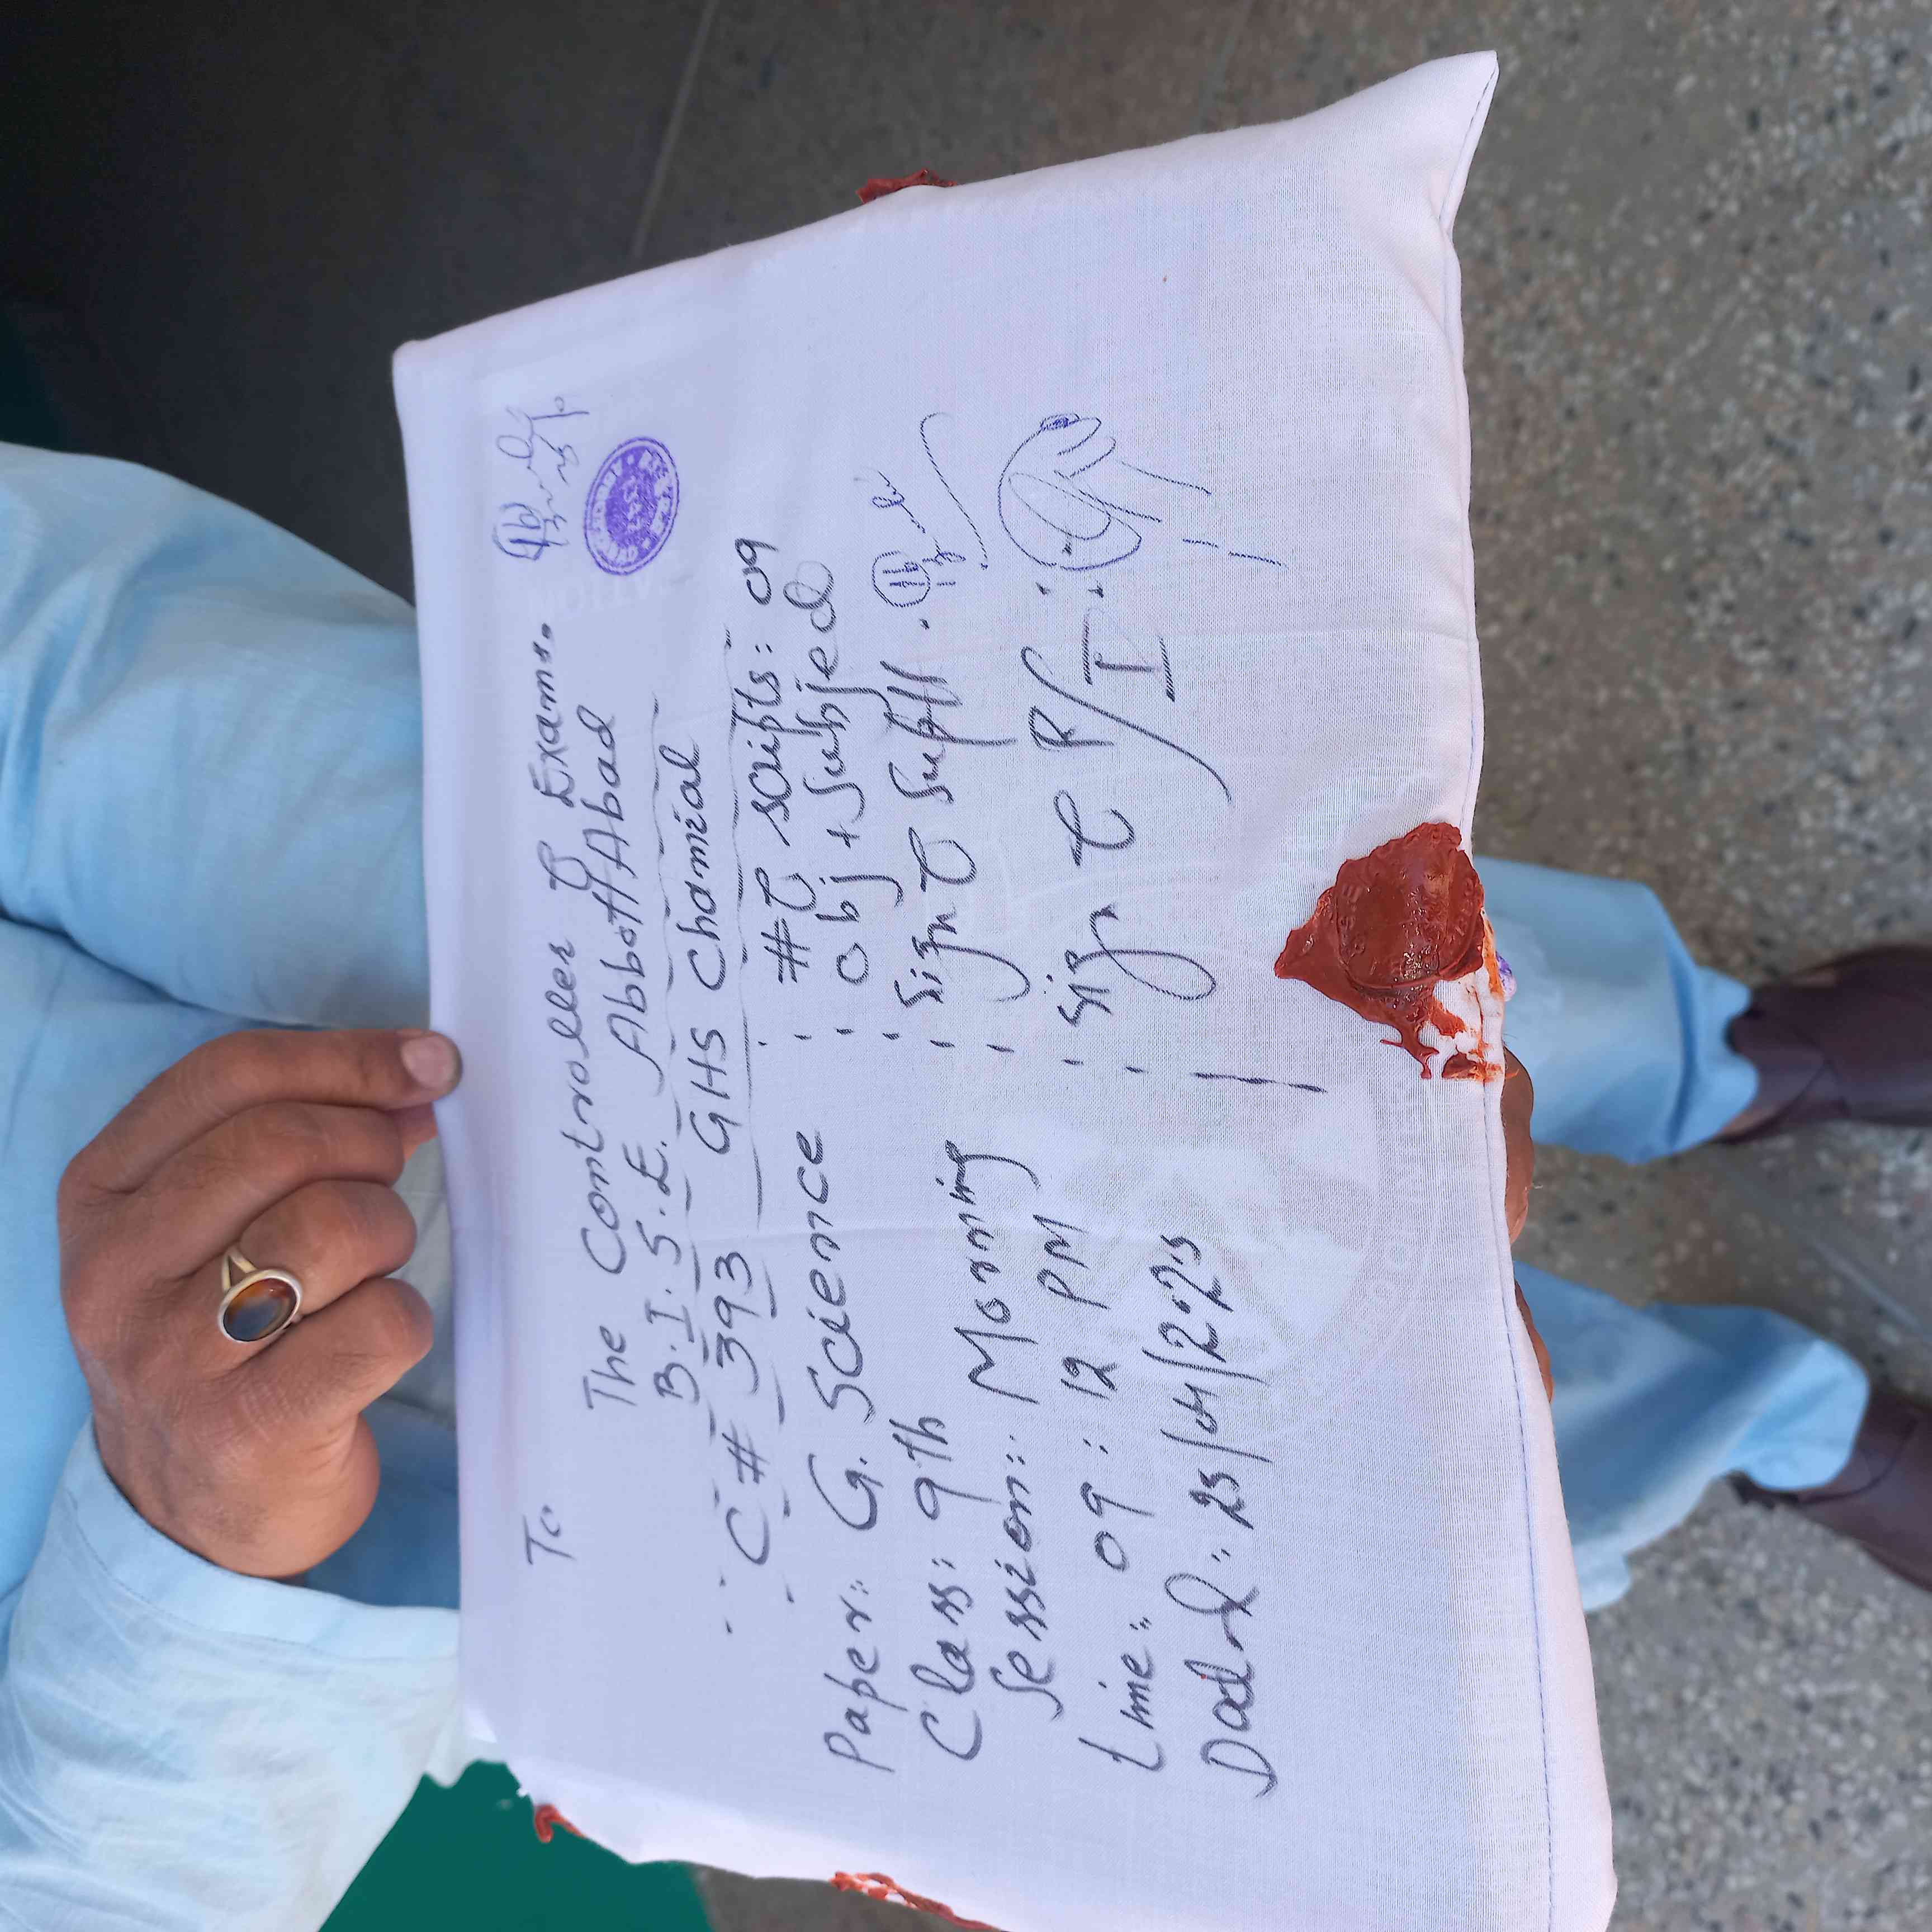 To
The Controller of Exams.
B.I.S.E. AbbottAbad
C# 393 GHS Chamial
Paper: G. Science
Class: 9th
Session: Morning
Time: 09: 12 PM
Dated: 25/04/2025
# of scripts: 09
Obj + Subjed
Sign of Suptt.
Sign of R/I: